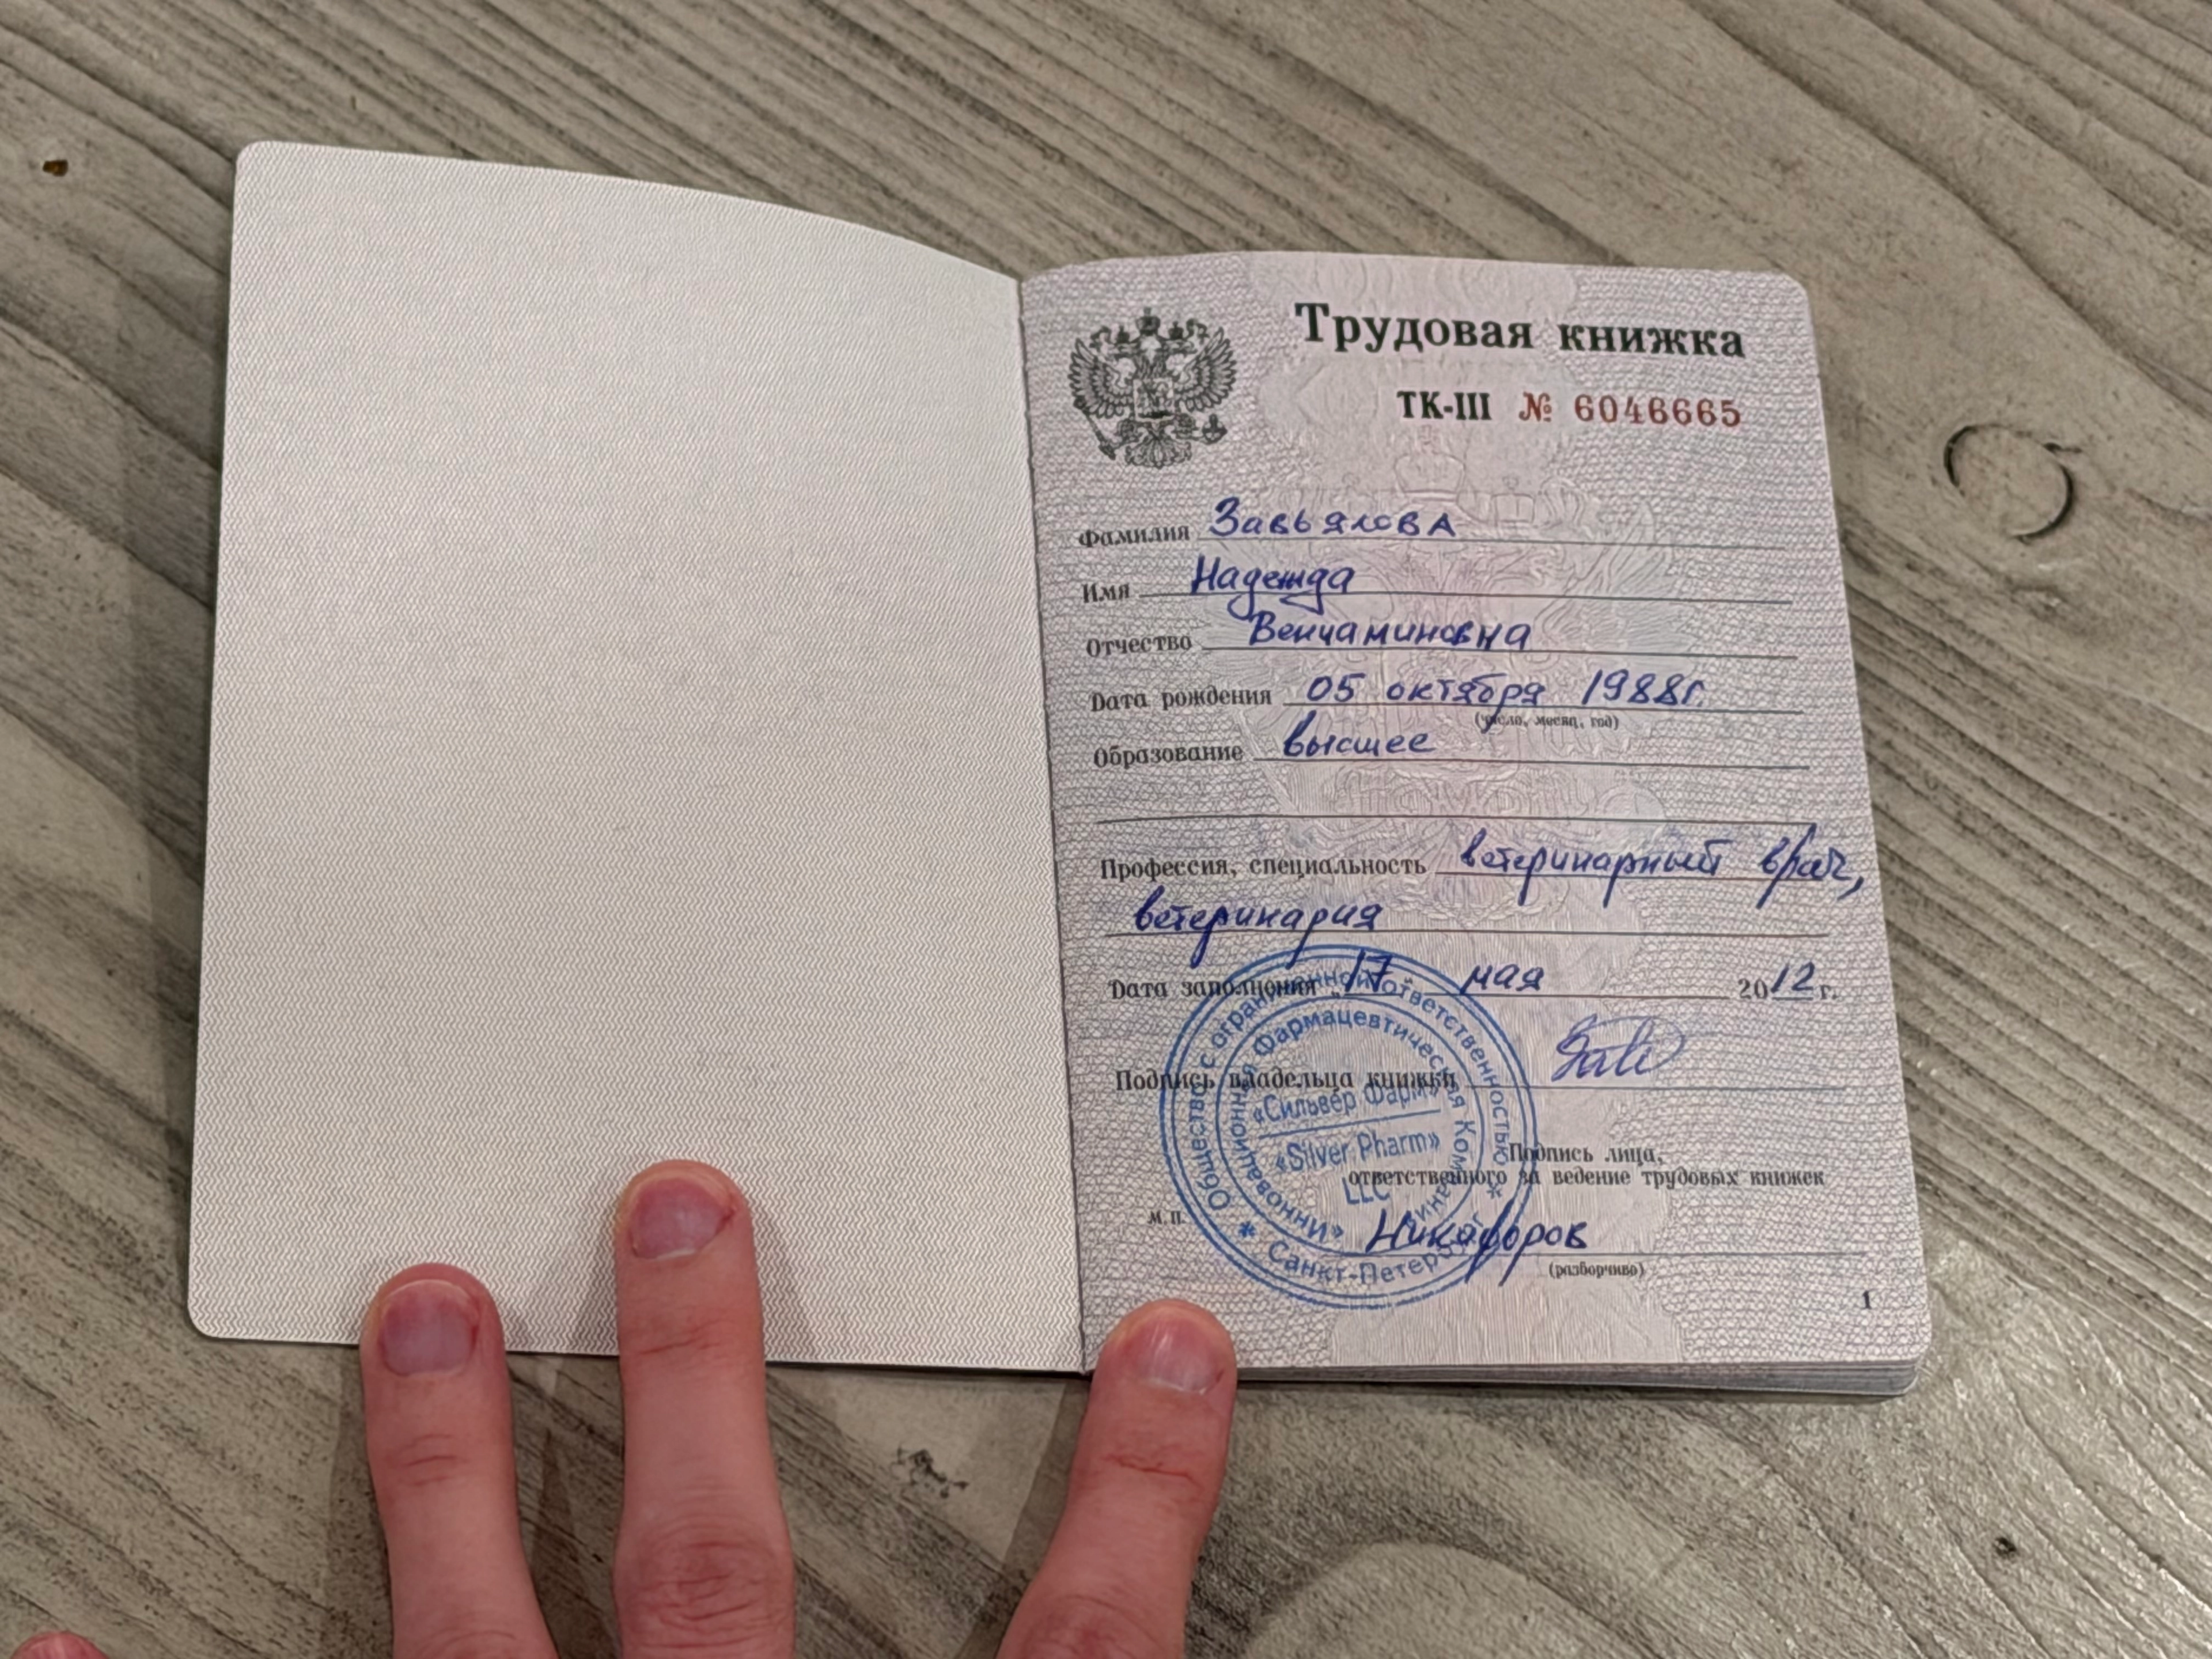 Трудовая книжка
ТК-III № 6046665
Фамилия Завьялова
Имя Надежда
Отчество Вениаминовна
Дата рождения 05 октября 1988г.
(число, месяц, год)
Образование высшее
Профессия, специальность ветеринарный врач,
ветеринария
Дата заполнения "17" мая 2012 г.
Подпись владельца книжки
Подпись лица,
ответственного за ведение трудовых книжек
М.П.
Никифоров
(разборчиво)
1
Общество с ограниченной ответственностью
* Санкт-Петербург *
«Инновационная Фармацевтическая Компания
«Сильвер Фарм»
«Silver Pharm»
LLC